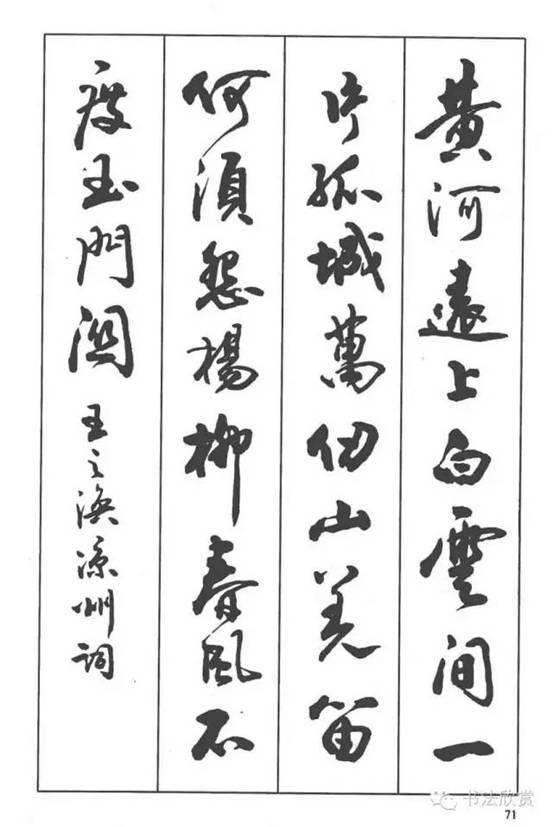 黄河遠上白雲间一
片孤城萬仞山羌笛
何須怨楊柳春風不
度玉門関
王之渙涼州詞
书法欣赏
71